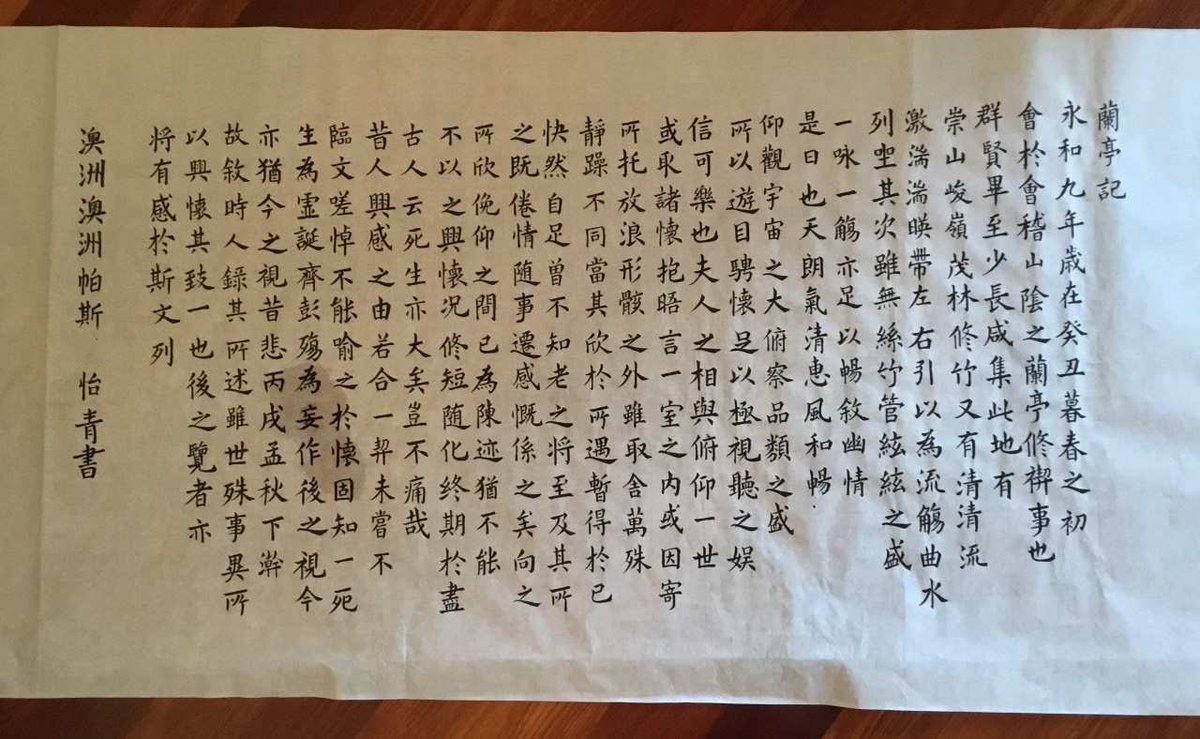 蘭亭記
永和九年歲在癸丑暮春之初
會於會稽山陰之蘭亭修禊事也
群賢畢至少長咸集此地有
崇山峻嶺茂林修竹又有清清流
激湍湍暎帶左右引以為流觴曲水
列坐其次雖無絲竹管絃絃之盛
一咏一觴亦足以暢敘幽情
是日也天朗氣清惠風和暢
仰觀宇宙之大俯察品類之盛
所以遊目騁懷足以極視聽之娛
信可樂也夫人之相與俯仰一世
或取諸懷抱晤言一室之内或因寄
所托放浪形骸之外雖取舍萬殊
靜躁不同當其欣於所遇暫得於己
快然自足曾不知老之将至及其所
之既倦情随事遷感慨係之矣向之
所欣俛仰之間已為陳迹猶不能
不以之興懷况修短随化终期於盡
古人云死生亦大矣豈不痛哉
昔人興感之由若合一契未嘗不
臨文嗟悼不能喻之於懷固知一死
生為虛誕齊彭殤為妄作後之視今
亦猶今之視昔悲丙戌孟秋下澣
故敘時人録其所述雖世殊事異所
以興懷其致一也後之覽者亦
将有感於斯文列
澳洲澳洲帕斯 怡青書